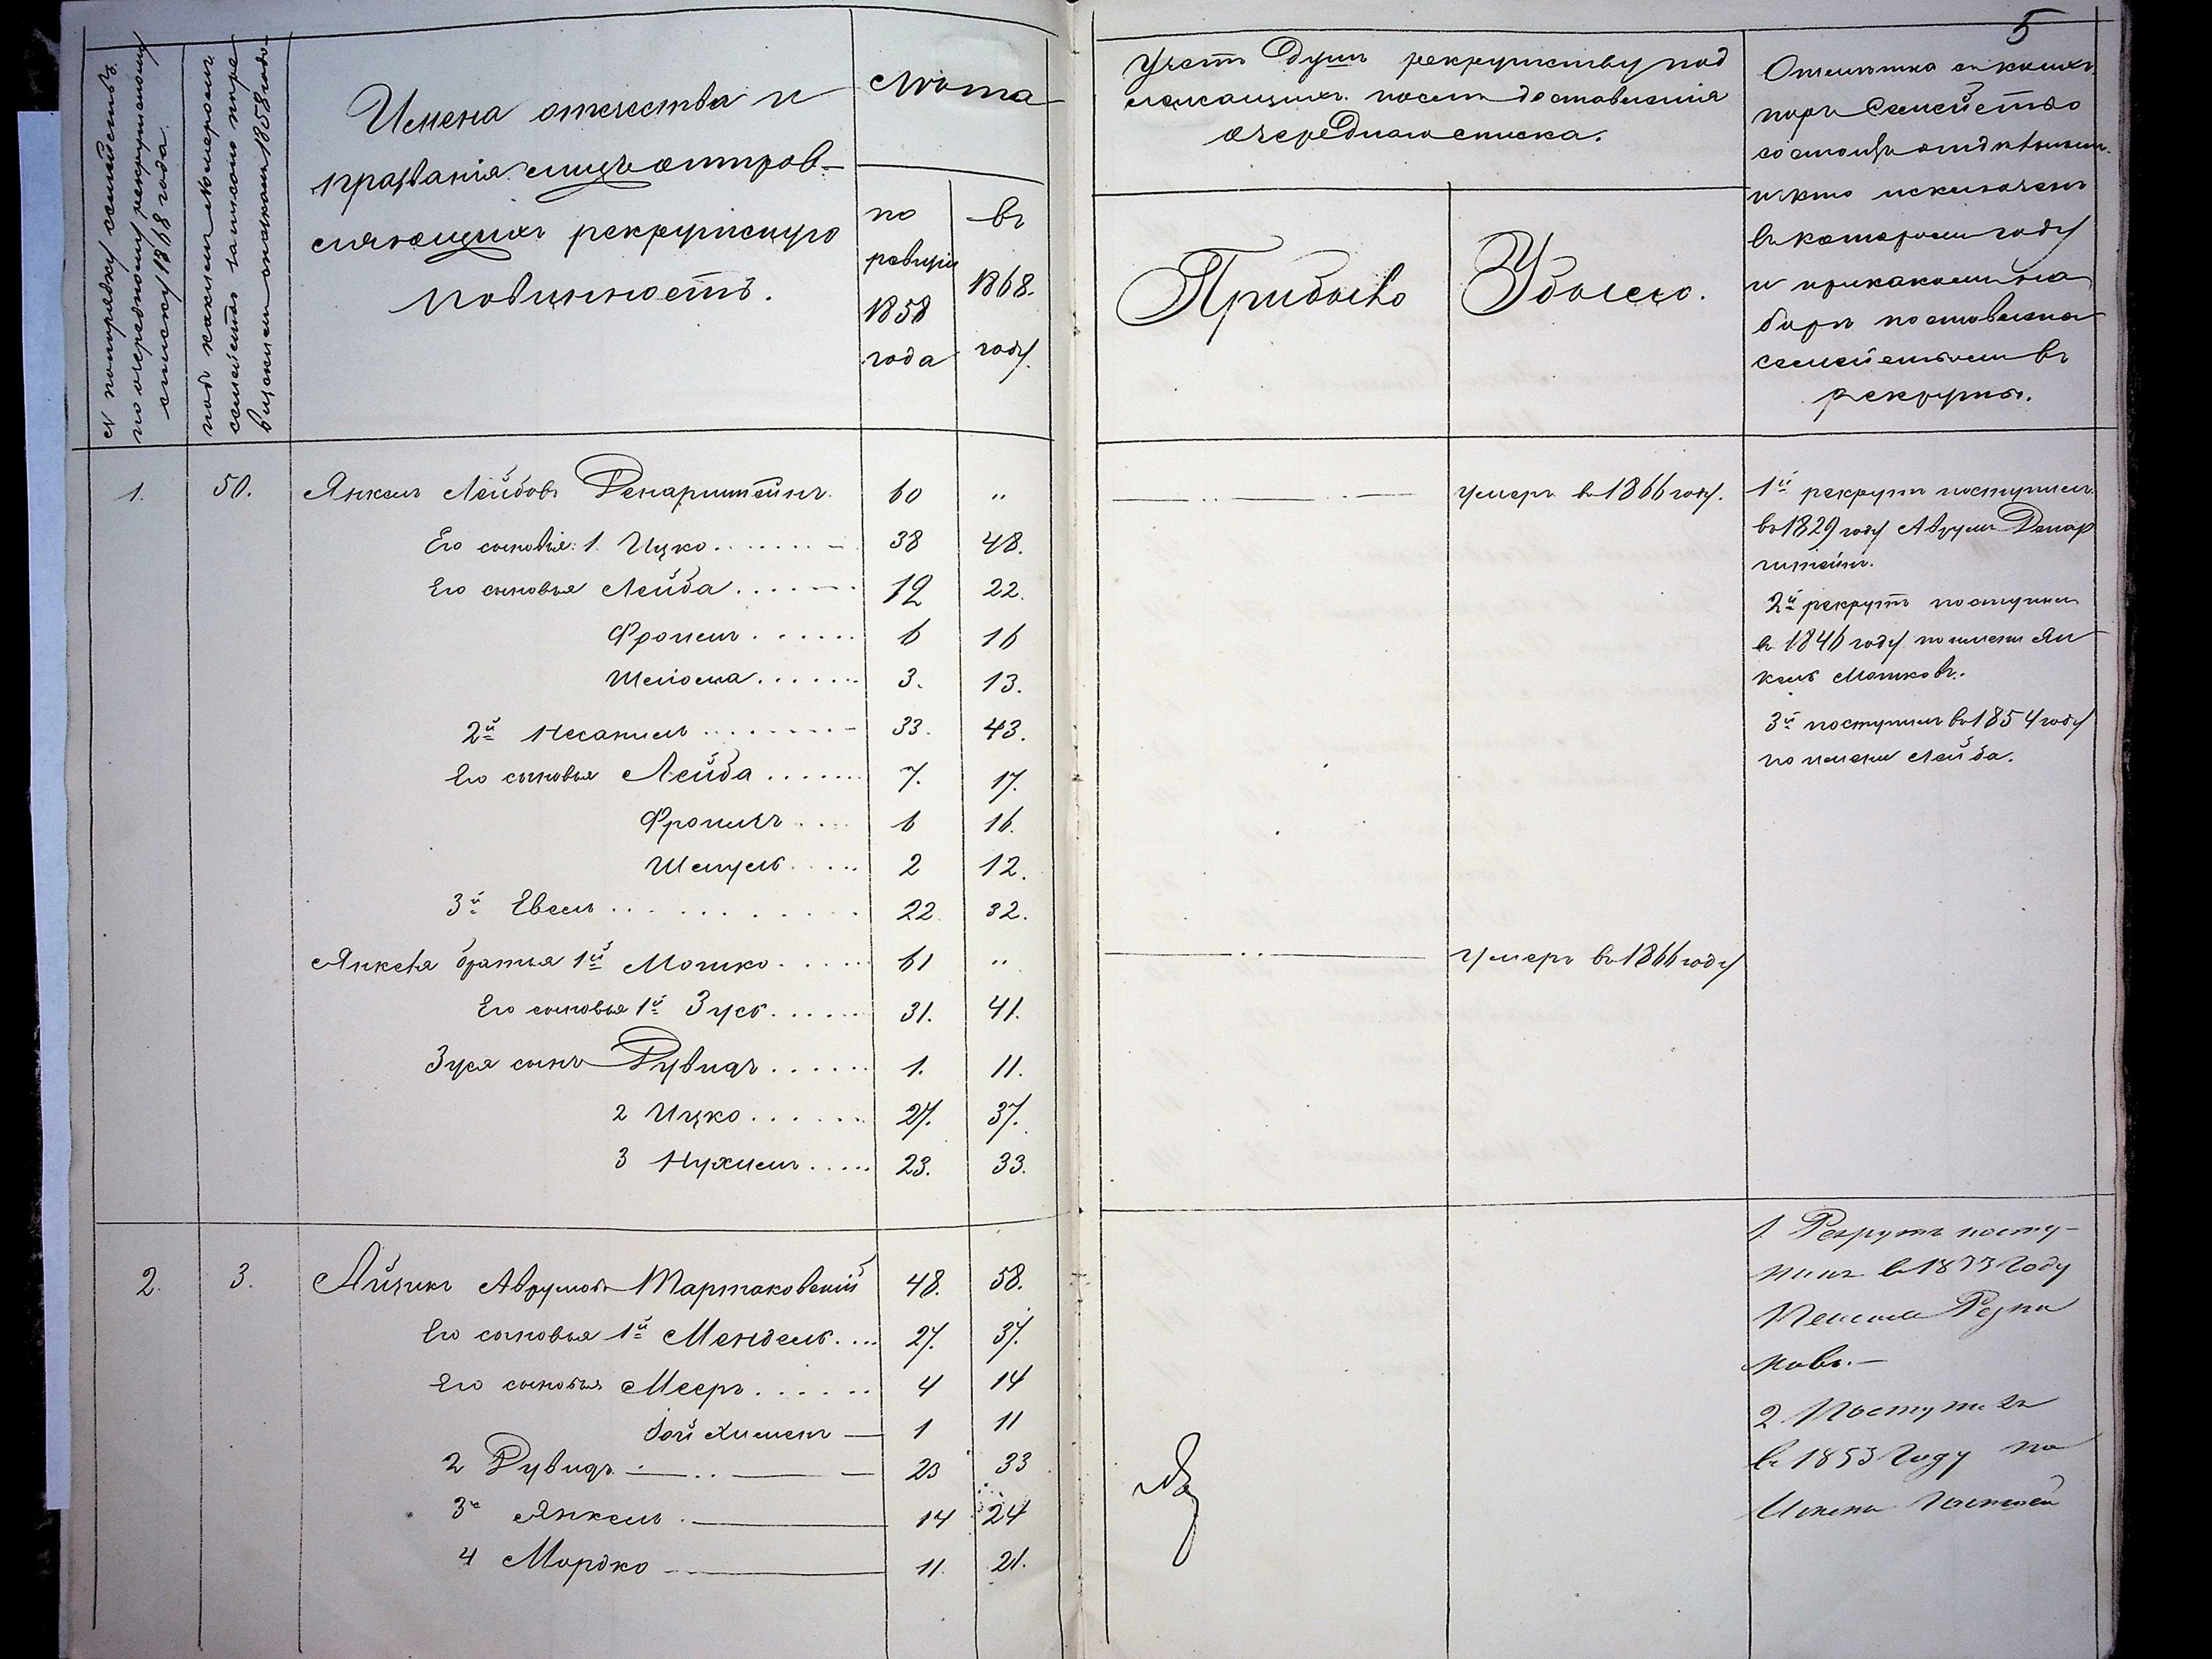 5
№ попорядку семействъ
по очередному рекрутскому
списку 1868 года.
подъ какимъ номеромъ
семейство записано въ ре
визскомъ сказкамъ 1858 года
Имена отчества и
прозванія лицъ отправ-
ляющихъ рекрутскую
повинность.
Лѣта
по
ревизіи
1858
года
въ
1868.
году.
Учетъ душъ рекрутству под
лежащихъ посли составленія
очереднаго списка.
Прибыло
Убыло.
Отмѣтка съ какихъ
поръ семейство
состоитъ отдѣльнымъ
и кто исключенъ
въ которомъ году
и при какомъ на
борѣ поставлена
семействомъ въ
рекруты.
1. 50. Янкель Лейбовъ Ренарштейнъ. 60 " умеръ въ 1866 году.
Его сыновья: 1. Ицко 38 48.
Его сыновья Лейба 12 22.
Фроимъ 6 16
Шлиома 3. 13.
2й Несанель 33. 43.
Его сыновья Лейба 7. 17.
Фроимъ 6 16.
Шмуль 2 12.
3й Евель 22. 32.
Янкеля братья 1й Мошко 61 " умеръ въ 1866 году
Его сыновья 1й Зусь 31. 41.
Зуся сынъ Рувинъ 1. 11.
2 Ицко 27. 37.
3 Нухимъ 23. 33.
1й рекрутъ поступилъ
въ 1829 году Аврумъ Ренар
штейнъ.
2й рекрутъ поступилъ
въ 1846 году по имени Ян
кель Мошковъ.
3й поступилъ въ 1854 году
по имени Лейба.
2. 3. Айзикъ Аврумовъ Мартаковскій 48. 58.
Его сыновья 1й Мендель 27. 37.
Его сыновья Мееръ 4 14
1 11
2 Рувинъ 23 33
3й Янкель 14 24
4 Мордко 11. 21.
1. Рекрутъ посту-
пилъ въ 1833 году
2 Поступилъ
въ 1853 году по
имени